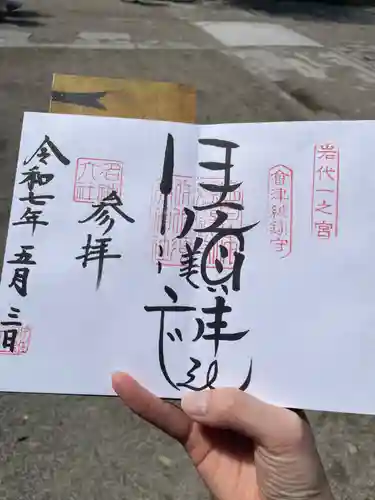 岩代一之宮
會津総鎮守
伊佐須美神社
参拝
名神大社
令和七年五月三日